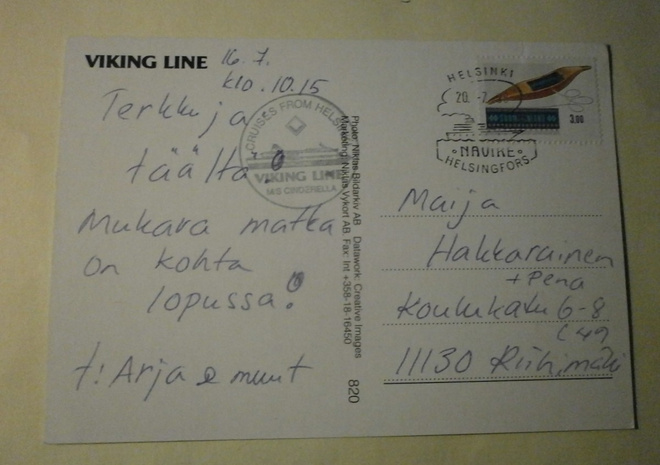 VIKING LINE
16.7.
klo. 10.15
Terkkuja
täältä!
Mukava matka
on kohta
lopussa!
t: Arja & muut
CRUISES FROM HELSINKI
VIKING LINE
M/S CINDERELLA
Photo: Niklas Bildarkiv AB Datawork: Creative Images
Marketing: Niklas Vykort AB, Fax: Int +358-18-16450
820
HELSINKI
20. -7.
NAVIRE
HELSINGFORS
Maija
Hakkarainen
+ Pena
Koulukatu 6-8
C 49
11130 Riihimäki